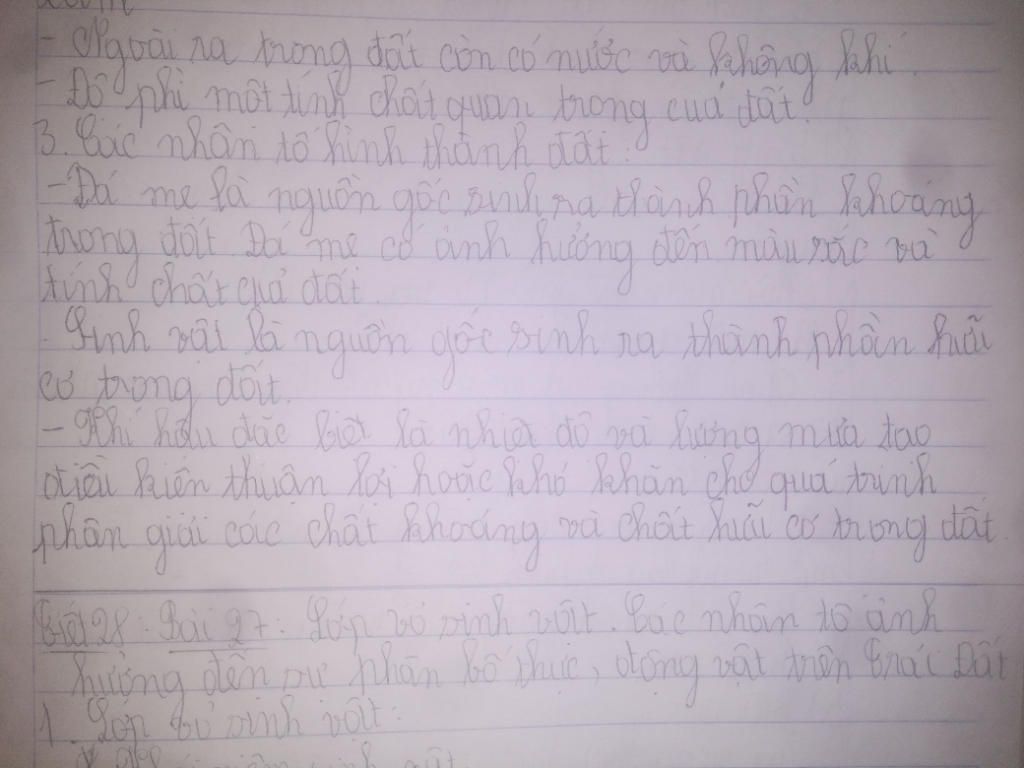 - Ngoài ra trong đất còn có nước và không khí.
- Độ phì một tính chất quan trọng của đất.
3. Các nhân tố hình thành đất:
- Đá mẹ là nguồn gốc sinh ra thành phần khoáng
trong đất. Đá mẹ có ảnh hưởng đến màu sắc và
tính chất của đất.
- Sinh vật là nguồn gốc sinh ra thành phần hữu
cơ trong đất.
- Khí hậu đặc biệt là nhiệt độ và lượng mưa tạo
điều kiện thuận lợi hoặc khó khăn cho quá trình
phân giải các chất khoáng và chất hữu cơ trong đất.
Tiết 28: Bài 27: Lớp vỏ sinh vật. Các nhân tố ảnh
hưởng đến sự phân bố thực, động vật trên Trái Đất
1. Lớp vỏ sinh vật: